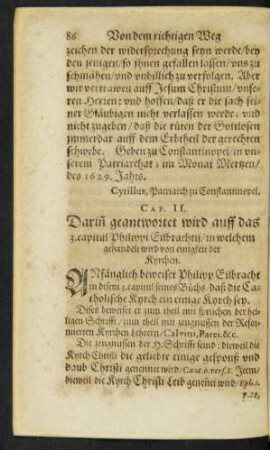 86 Von dem richtigen Weg
zeichen der widersprechung seyn werde / bey
den jenigen / so ihnen gefallen lassen / vns zu
schmähen / vnd vnbillich zu verfolgen. Aber
wir vertrawen auff Jesum Christum / vnse-
ren Herren: vnd hoffen / daß er die sach sei-
ner Gläubigen nicht verlassen werde: vnd
nicht zugeben / daß die rüten der Gottlosen
jmmerdar auff dem Erbtheil der gerechten
schwebe. Geben zu Constantinopel / in vn-
serem Patriarchat; im Monat Mertzen /
des 1629. Jahrs.
Cyrillus, Patriarch zu Constantinopel.
CAP. II.
Dariñ geantwortet wird auff das
3. capitul Philippi Eilbrachtii / in welchem
gehandelt wird von einigkeit der
Kyrchen.
ANfänglich beweiset Philipp Eilbracht
in disem 3. capitul seines Buchs, daß die Ca-
tholische Kyrch ein einige Kyrch sey.
Dises beweiset er zum theil mit sprüchen der hei-
ligen Schrifft / zum theil mit zeugnussen der Refor-
mierten Kyrchen Lehrern / Calvini, Parei, &c.
Die zeugnussen der H. Schrifft seind: dieweil die
Kyrch Christi die geliebte einige gesponß vnd
daub Christi genennet wird / Cant. 6. vers. 8. Item /
dieweil die Kyrch Christi Leib genenet wird / Ephe. 1.
v. 23,